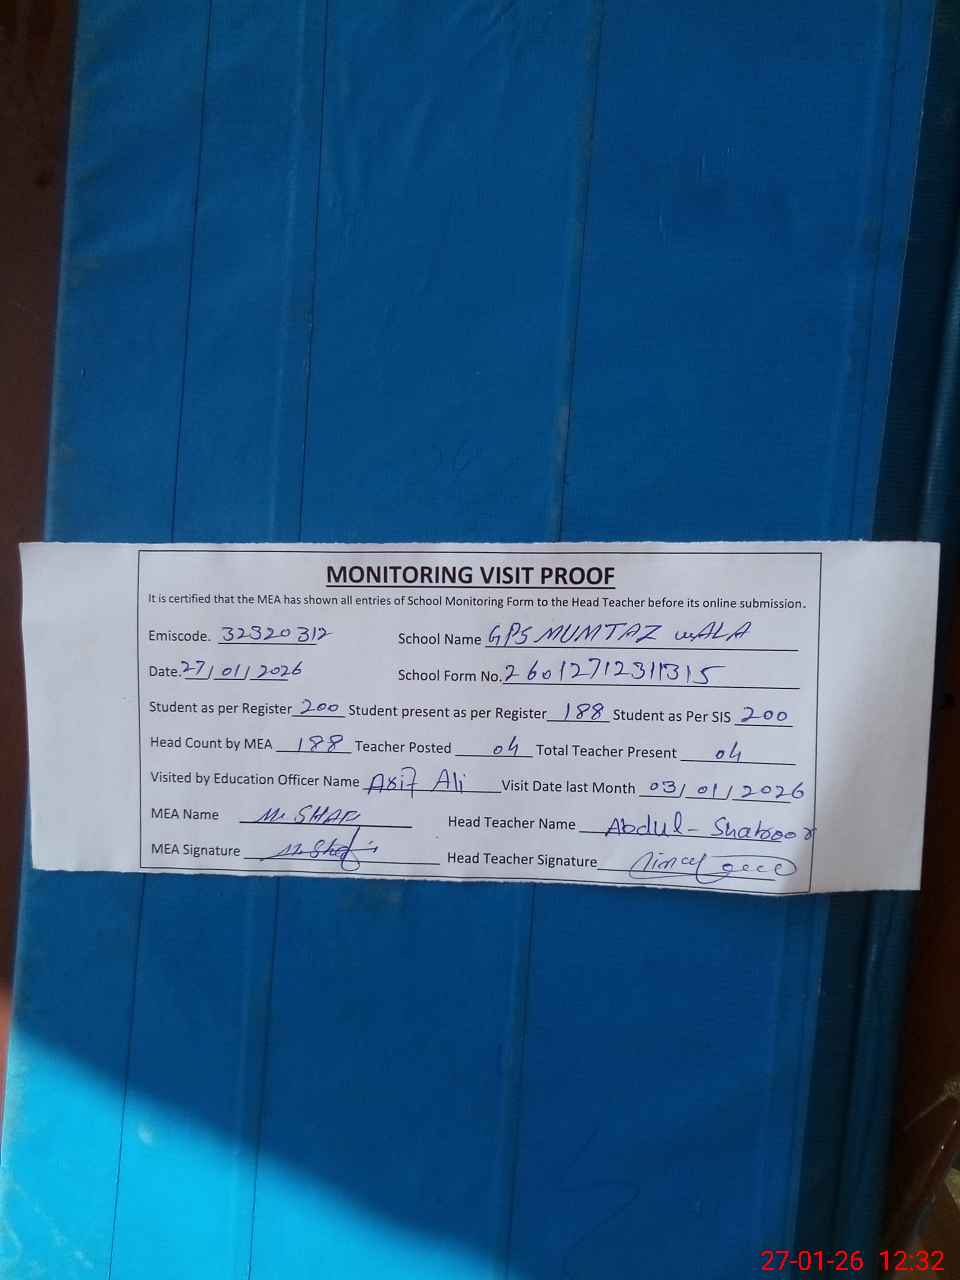 MONITORING VISIT PROOF
It is certified that the MEA has shown all entries of School Monitoring Form to the Head Teacher before its online submission.
Emiscode. 32320312 School Name GPS MUMTAZ wALA
Date. 27/01/2026 School Form No. 26012712311315
Student as per Register 200 Student present as per Register 188 Student as Per SIS 200
Head Count by MEA 188 Teacher Posted 04 Total Teacher Present 04
Visited by Education Officer Name Asif Ali Visit Date last Month 03/01/2026
MEA Name
Head Teacher Name Abdul-Shaboor
MEA Signature Head Teacher Signature
27-01-26 12:32